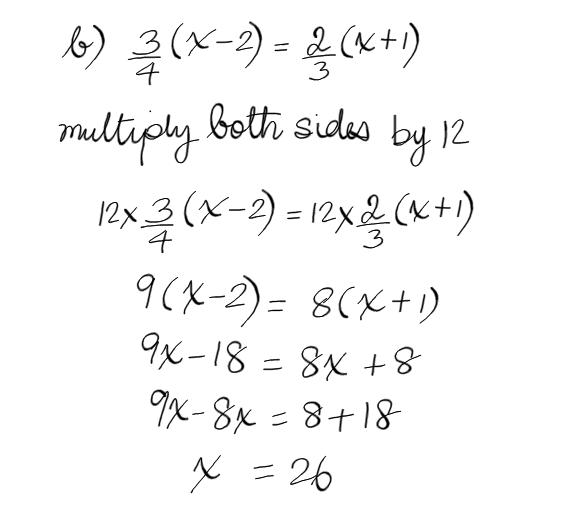 b) 3/4 (x-2) = 2/3 (x+1)
multiply both sides by 12
12x 3/4 (x-2) = 12x 2/3 (x+1)
9(x-2) = 8(x+1)
9x-18 = 8x +8
9x-8x = 8+18
x = 26